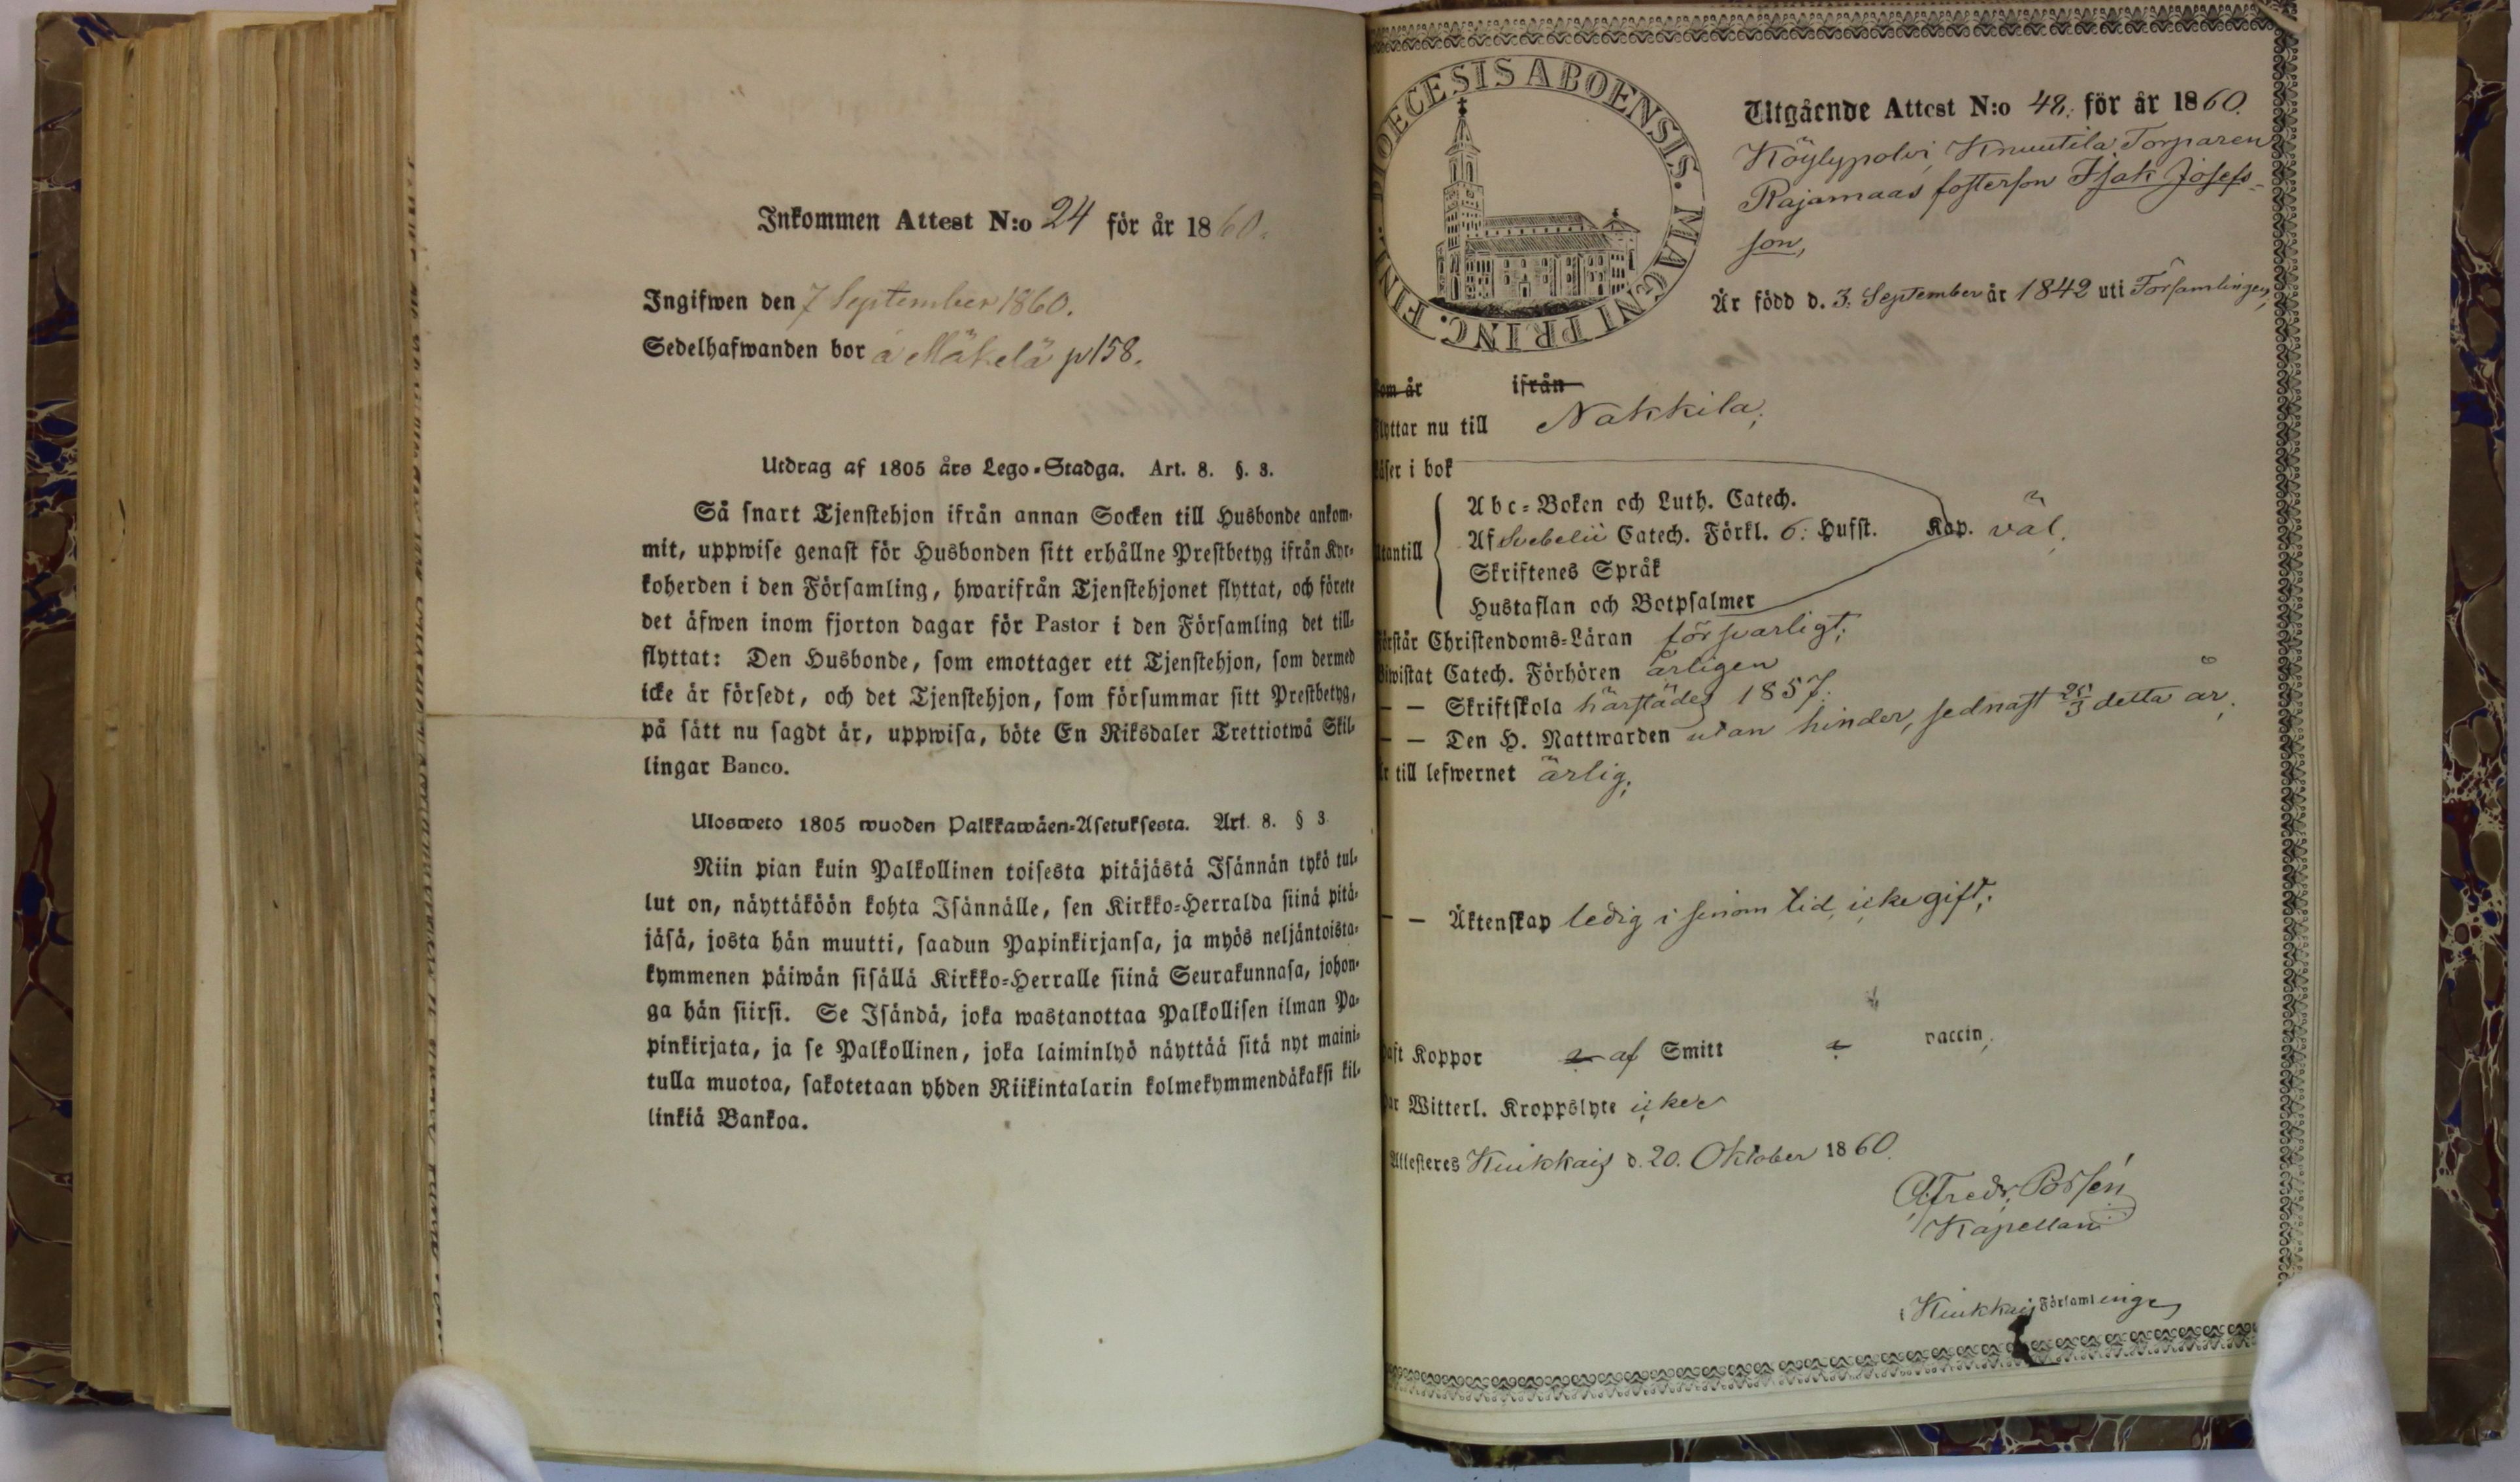 Inkommen Attest N:o 24 för år 1860.
Ingifwen den 7 September 1860.
Sedelhafwanden bor å Mäkelä p 158.
Utdrag af 1805 års Lego-Stadga. Art. 8. §. 3.
Så snart Tjenstehjon ifrån annan Socken till Husbonde ankom-
mit, uppwise genast för Husbonden sitt erhållne Prestbetyg ifrån Kyr-
koherden i den Församling, hwarifrån Tjenstehjonet flyttat, och förete
det äfwen inom fjorton dagar för Pastor i den Församling det till-
flyttat: Den Husbonde, som emottager ett Tjenstehjon, som dermed
icke är försedt, och det Tjenstehjon, som försummar sitt Prestbetyg,
på sätt nu sagdt är, uppwisa, böte En Riksdaler Trettiotwå Skil-
lingar Banco.
Ulosweto 1805 wuoden Palkkawäen-Asetuksesta. Art. 8. § 3
Niin pian kuin Palkollinen toisesta pitäjästä Isännän tykö tul-
lut on, näyttäköön kohta Isännälle, sen Kirkko-Herralda siinä pitä-
jäsä, josta hän muutti, saadun Papinkirjansa, ja myös neljäntoista-
kymmenen päiwän sisällä Kirkko-Herralle siinä Seurakunnasa, johon-
ga hän siirsi. Se Isändä, joka wastanottaa Palkollisen ilman Pa-
pinkirjata, ja se Palkollinen, joka laiminlyö näyttää sitä nyt maini-
tulla muotoa, sakotetaan yhden Riikintalarin kolmekymmendäkaksi kil-
linkiä Bankoa.
DIOECESIS ABOENSIS. MAGNI PRINC. FINL.
Utgående Attest N:o 48. för år 1860.
Köylypolvi, Knuutila, Torparen
Rajamaas fosterson Isak Josefs-
son,
Är född d. 3. September år 1842 uti Församlingen,
om år ifrån
lyttar nu till Nakkila;
äser i bok
Abc-Boken och Luth. Catech.
tantill Af Svebelii Catech. Förkl. 6: Hufst. Kap. väl,
Skriftenes Språk
Hustaflan och Botpsalmer
örstår Christendoms-Läran försvarligt;
iwistat Catech. Förhören årligen
— — Skriftskola härstädes 1857;
— — Den H. Nattwarden utan hinder, sednast 25/3 detta år,
r till lefwernet ärlig;
— — Äktenskap ledig i senom tid, icke gift;
aft Koppor af Smitt vaccin,
ar Witterl. Kroppslyte icke
Attesteres Kiukkais d. 20. Oktober 1860.
Alfredr. Possén
Kapellan
i Kiukkais Församlinge